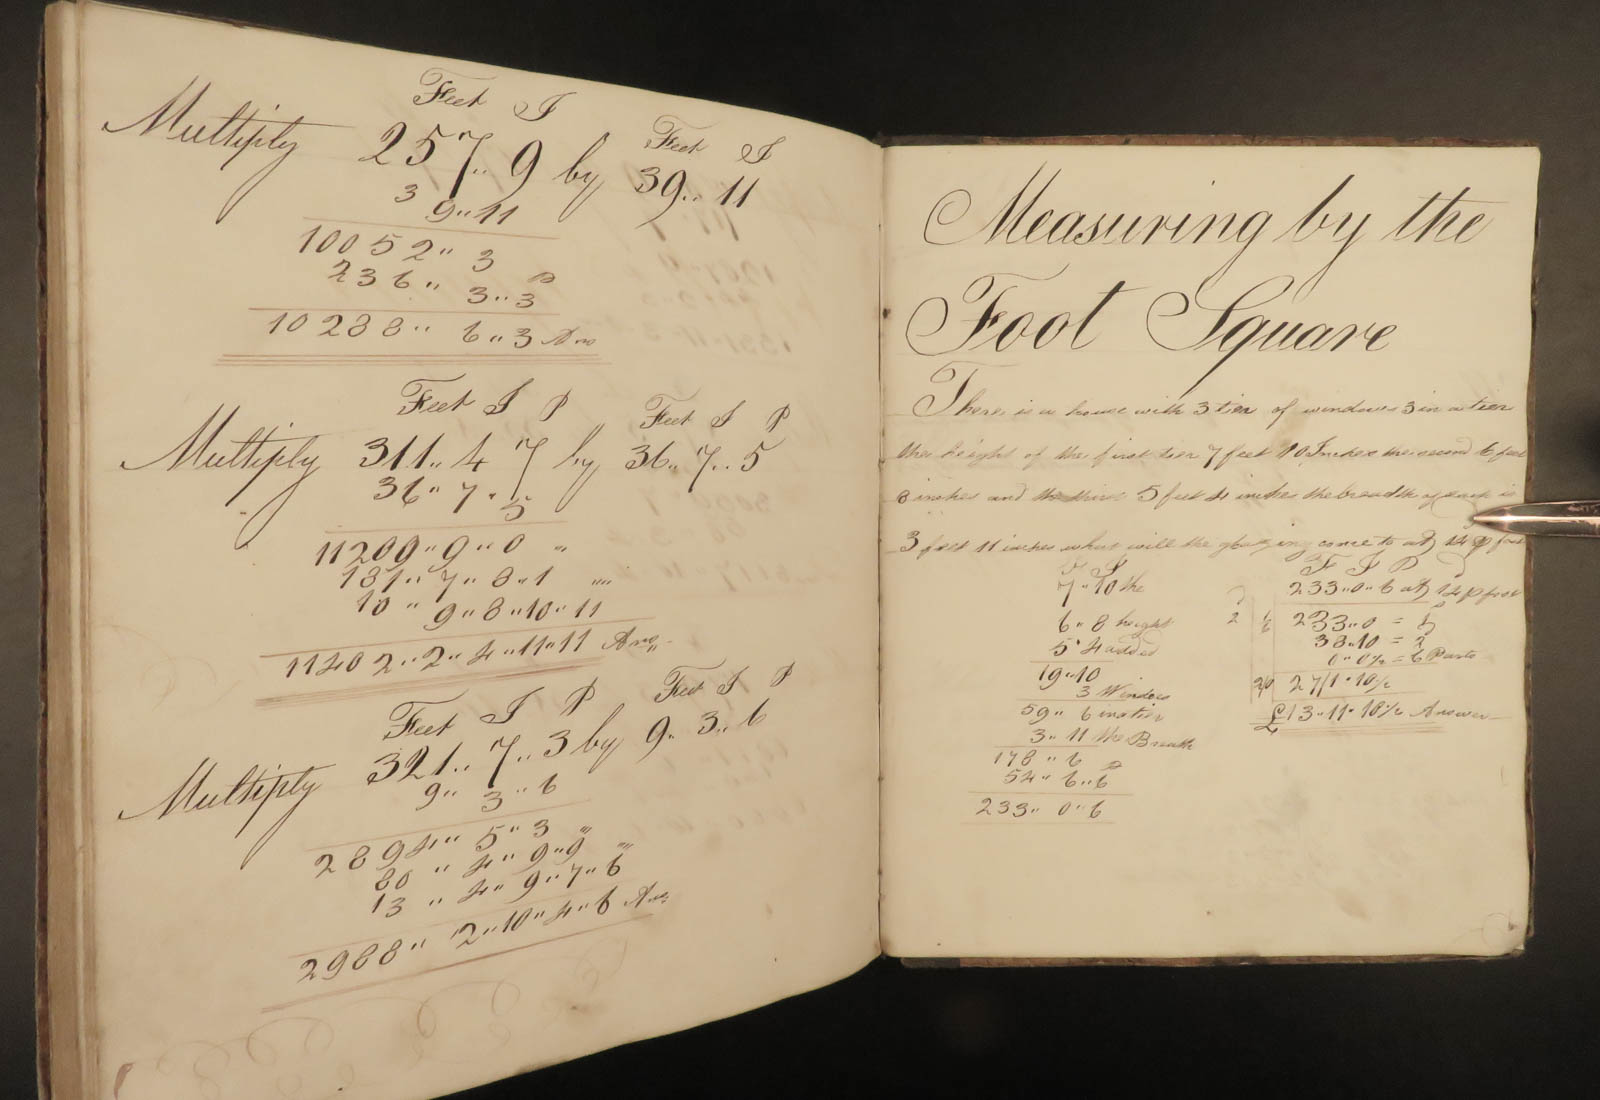 Feet I
Feet I
Multiply 257,, 9 by 39,, 11
39,, 11
10052,, 3
236,, 3,, 3
10288,, 6,, 3 Ans
Feet I P
Feet I P
Multiply 311,, 4 7 by 36,, 7,, 5
36,, 7,, 5
11209,, 9,, 0 ,,
181,, 7,, 8,, 1 ,,,,
10 ,, 9,, 8,, 10,, 11
11402,, 2,, 4,, 11,, 11 Ans
Feet I P
Feet I P
Multiply 321,, 7,, 3 by 9,, 3,, 6
9,, 3,, 6
2894,, 5,, 3 ,,
80 ,, 4,, 9,, 9 ,,,
13 ,, 4,, 9,, 7,, 6
2988,, 2,, 10,, 4,, 6 Ans
Measuring by the
Foot Square
There is a house with 3 tier of windows 3 in a tier
the height of the first tier 7 feet 10 Inches the second 6 feet
8 inches and the third 5 feet 4 inches the breadth of each is
3 feet 11 inches what will the glazing come to at 14 p foot
F I
7,, 10 the
6,, 8 height
5,, 4 added
19,, 10
3 Windows
59,, 6 in a tier
3,, 11 the Breath
178,, 6
54,, 6,, 6
233,, 0,, 6
F I P
233,, 0,, 6 at 14 p foot
2 1/6 233,, 0 =
38,, 10 = 2
0,, 0¼ = 6 Parts
20 27/1,, 10½
£13,, 11,, 10½ Answer